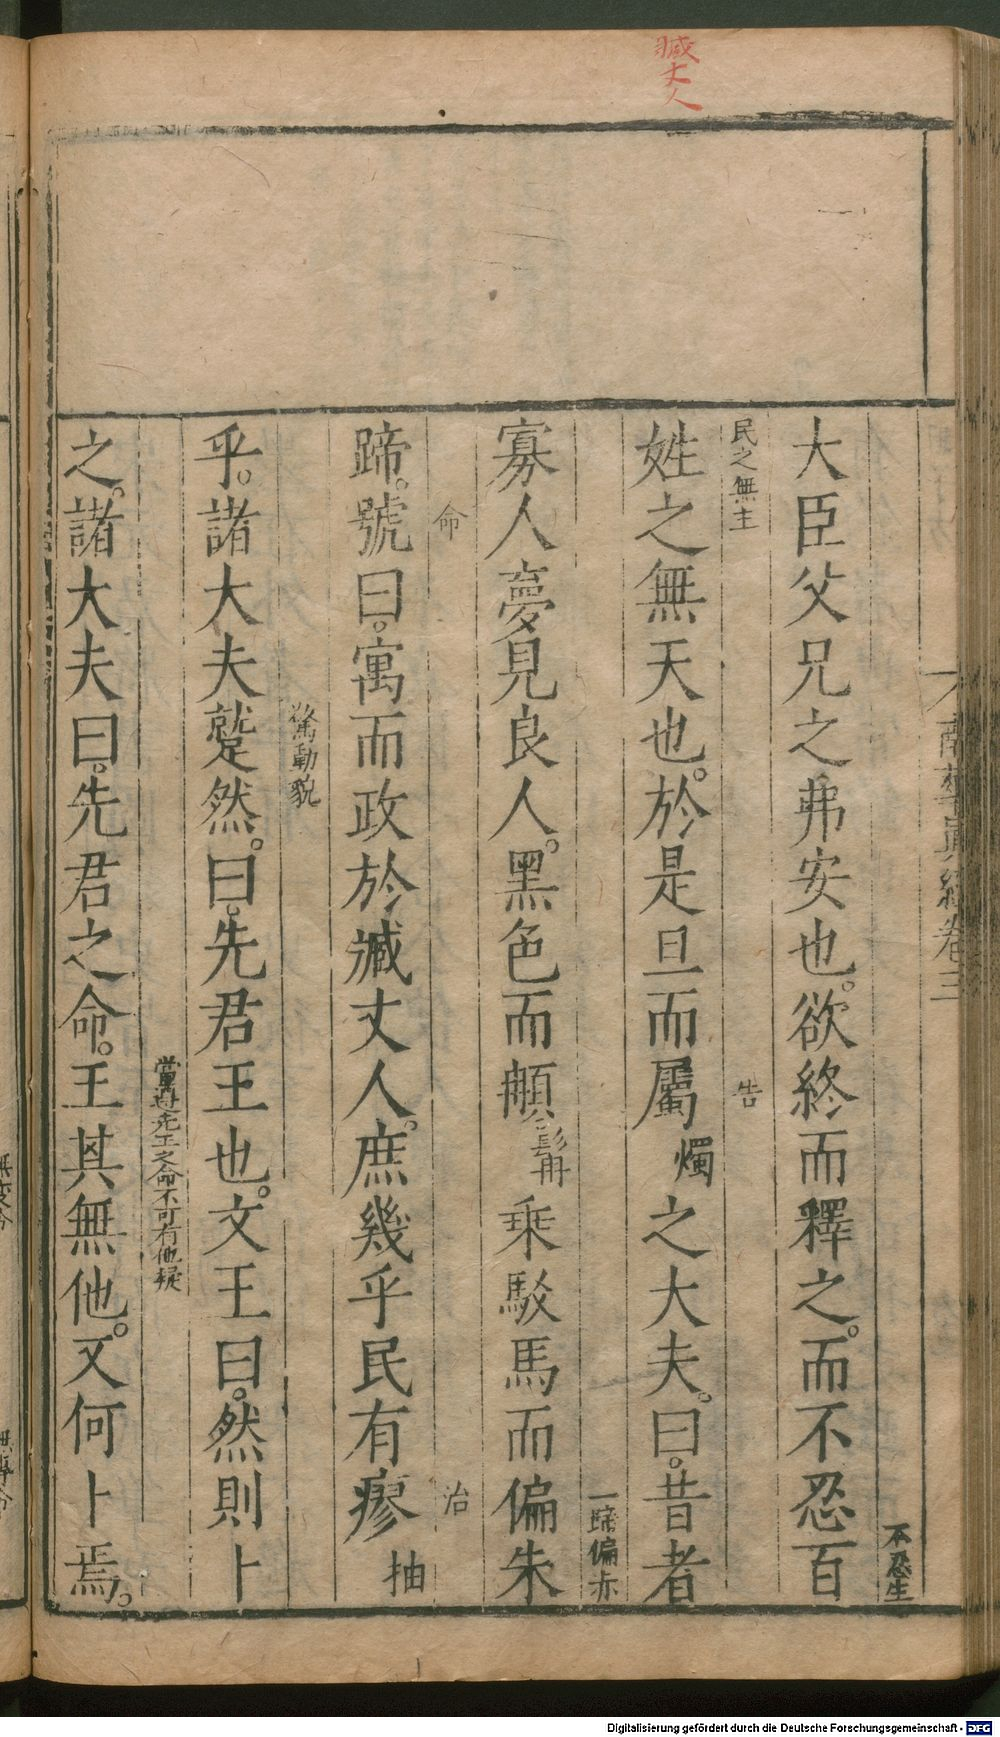 臧丈人
南華眞經卷三
不忍生
大臣父兄之弗安也。欲終而釋之。而不忍百
民之無主
告
姓之無天也。於是旦而屬燭之大夫。曰。昔者
一蹄偏赤
寡人夢見良人。黑色而䫇髯乘駁馬而偏朱
命
治
蹄。號曰。寓而政於臧丈人。庶幾乎民有瘳抽
驚動貌
乎。諸大夫蹵然。曰。先君王也。文王曰。然則卜
當遵先王之命不可有他疑
之。諸大夫曰。先君之命。王其無他。又何卜焉。
Digitalisierung gefördert durch die Deutsche Forschungsgemeinschaft - DFG